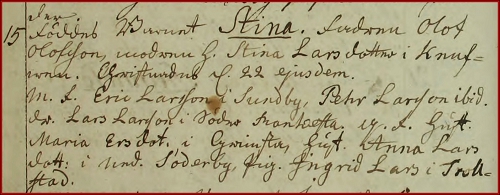 der.
15 Föddes Barnet Stina. Fadren Olof
Olofsson, modren h. Stina Lars dotter i Knuf-
wen. Christnades d. 22 ejusdem.
M. f. Eric Larsson i Sundby, Pehr Larsson ibid.
dr. Lars Larsson i Söder q. f. Hust.
Maria Ersdot. i Hust. Anna Lars
dott: i Ned. Söderby, pig. Ingrid Lars i Troll-
stad.